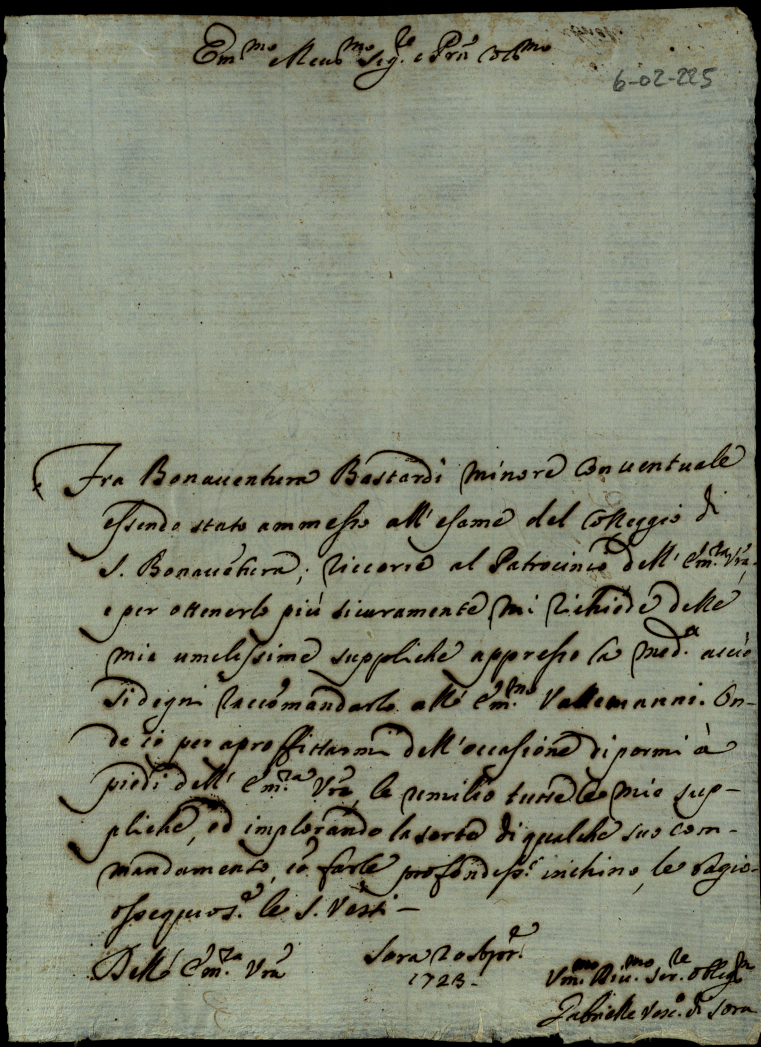 Em.mo e Reu.mo Sig.re e Prñ Col.mo
6-02-225
Fra Bonauentura Bastardi minore Conuentuale
essendo stato ammesso all'esame del Colleggio di
S. Bonauẽtura, riccorre al Patrocinio dell' Em.za Vrã,
e per ottenerlo più sicuramente mi richiede delle
mie umelissime suppliche appresso la med.a acciò
si degni raccõmandarlo all' Em.mo Vallemanni. On-
de io per aproffittarmi dell'occasione di pormi à
piedi dell' Em.za Vrã, le umilio tutte le mie sup-
pliche, ed implorando la sorte di qualche suo com-
mandamento, cõ farle profondiss.o inchino, le bagio
ossequios.e le S. Vesti —
Dell' Em.za Vrã
Sora 20 
1723.
Vm.mo Diu.mo Ser.re Oblig.mo
Gabrielle Vesc.o di Sora